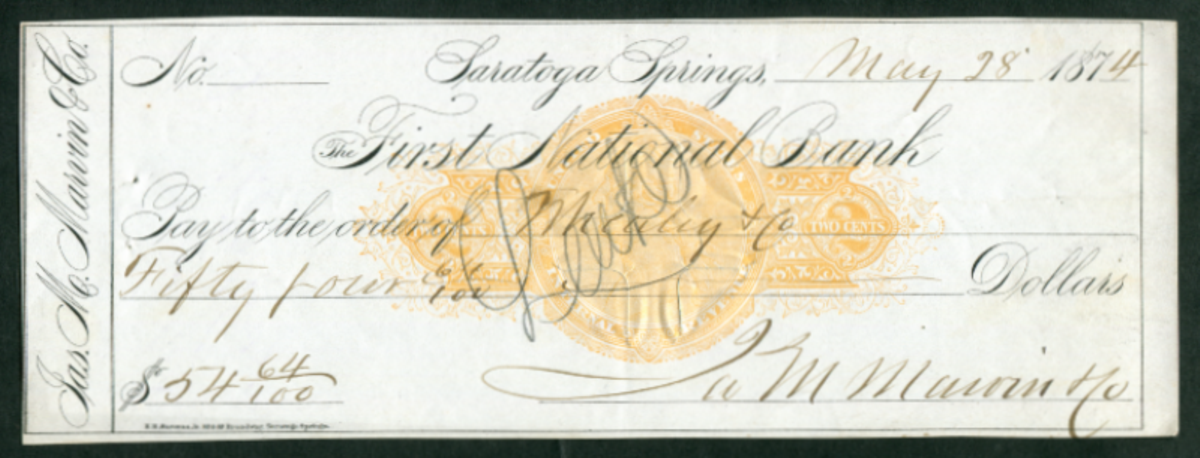 Jas. M. Marvin & Co.
No. Saratoga Springs, May 28 1874
The First National Bank
Pay to the order of & Co
TWO CENTS
Fifty four 64/100 Dollars
$54 64/100
Jas M Marvin & Co